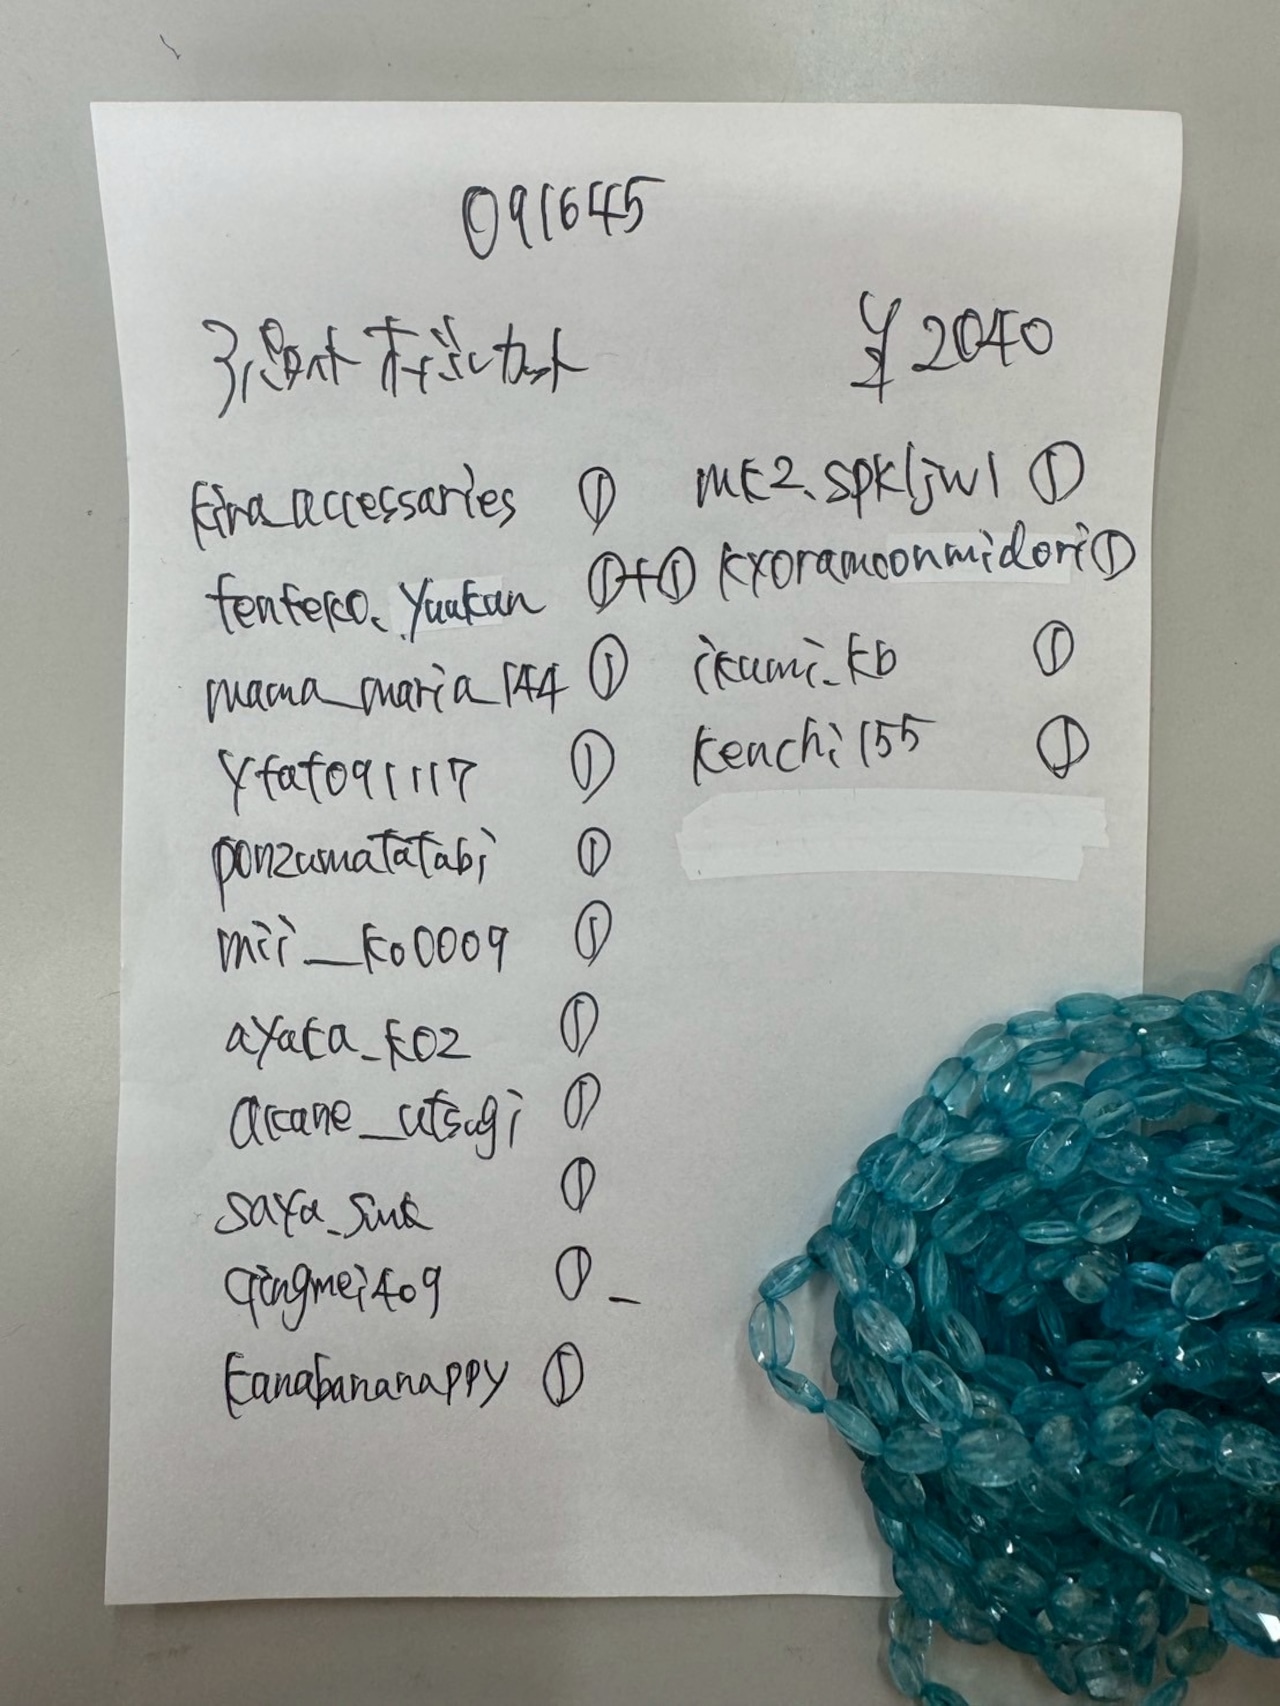 091645
¥2040
kira_accessaries ①
tenteko.yuukun ①+①
mama_maria_144 ①
ytat091117 ①
ponzumatatabi ①
mii_ko0009 ①
ayaka_k02 ①
akane_utsugi ①
saya_sink ①
qingmei409 ① -
kanabananappy ①
mk2.spkljwl ①
kyoramoonmidori ①
ikumi_kb ①
kenchi155 ①